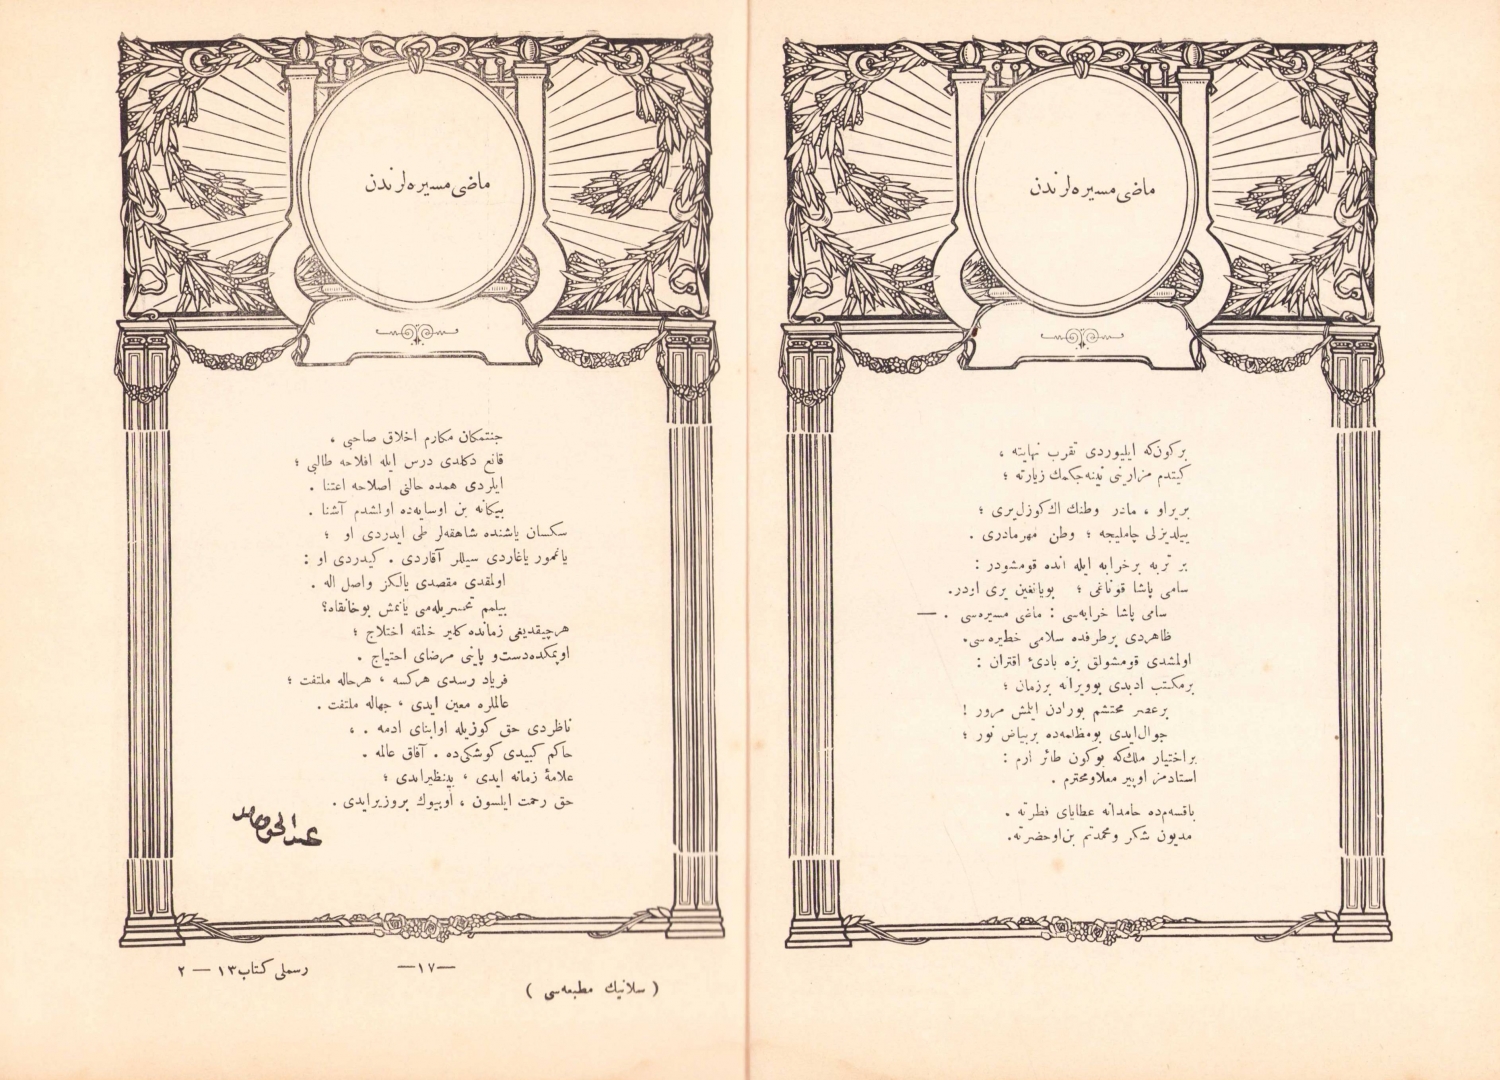 ماضی مسیره‌لرندن
برکون‌که ایلیوردی تقرب نهایته ،
کیتدم مزارینی ینه‌جکمك زیارته ؛
بریراو ، مادر وطنك اك‌کوزل‌یری ؛
ییلدیزلی چاملیجه ؛ وطن مهرمادری .
بر تربه برخرابه ایله انده قومشودر :
سامی پاشا قوناغی ؛ بویانغین یری اردر.
سامی پاشا خرابه‌سی : ماضی مسیره‌سی . —
ظاهردی برطرفده سلامی خطیره‌سی.
اولمشدی قومشولق بزه بادیٔ اقتران :
برمکتب ادبدی بوویرانه برزمان ؛
برعصر محتشم بورادن ایلمش مرور !
جوال‌ایدی بومظلمه‌ده بربیاض نور ؛
براختیار ملك‌که بوکون طائر ارم :
استادمز اوپیر معلاومحترم .
باقسه‌م‌ده حامدانه عطایای فطرته .
مدیون شکر ومحمدتم بن‌اوحضرته.
ماضی مسیره‌لرندن
جنتمکان مکارم اخلاق صاحبی ،
قانع دکلدی درس ایله افلاحه طالبی ؛
ایلردی همده حالنی اصلاحه اعتنا .
بیکانه بن اوسایه‌ده اولمشدم آشنا .
سکسان یاشنده شاهقه‌لر طی ایدردی او ؛
یاغمور یاغاردی سیللر آقاردی . کیدردی او :
اولمقدی مقصدی یالکز واصل اله .
بیلمم تحسریله‌می یانمش بوخانقاه؟
هرچیقدیغی زمانده کلیر خلقه اختلاج ؛
اوپمکده‌دست‌و پاینی مرضای احتیاج .
فریاد رسدی هرکسه ، هرحاله ملتفت ؛
عالملره معین ایدی ، جهاله ملتفت .
ناظردی حق کوزیله اوابنای ادمه . ،
حاکم کبیدی کوشکی‌ده . آفاق عالمه .
علامهٔ زمانه ایدی ، بینظیرایدی ؛
حق رحمت ایلسون ، اوبیوك بروزیرایدی .
عبدالحق حامد
—١٧—
رسملی کتاب ١٣ — ٢
( سلانیك مطبعه‌سی )